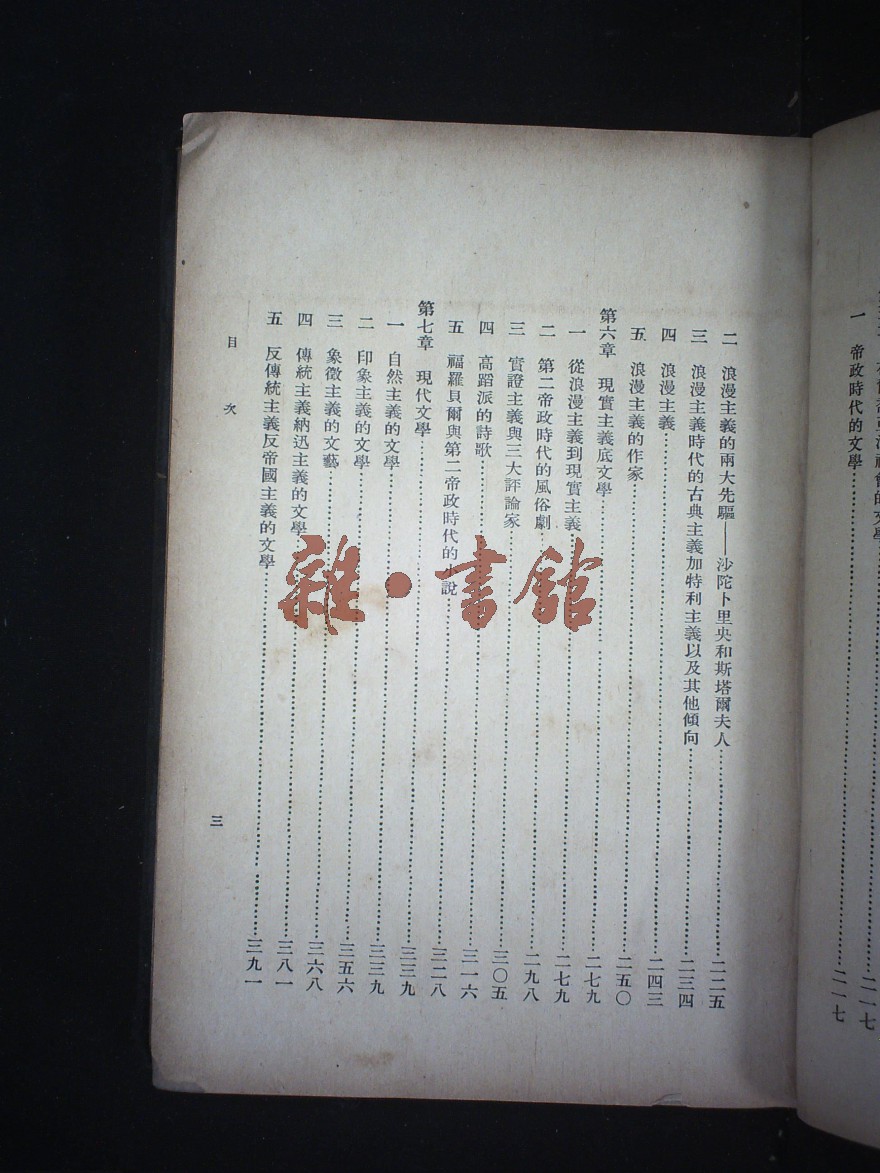 一 帝政時代的文學……二一七
二一七
二 浪漫主義的兩大先驅——沙陀卜里央和斯塔爾夫人……二二五
三 浪漫主義時代的古典主義加特利主義以及其他傾向……二三四
四 浪漫主義……二四三
五 浪漫主義的作家……二五〇
第六章 現實主義底文學……二七九
一 從浪漫主義到現實主義……二七九
二 第二帝政時代的風俗劇……二九八
三 實證主義與三大評論家……三〇五
四 高蹈派的詩歌……三一六
五 福羅貝爾與第二帝政時代的小說……三二八
第七章 現代文學……三三九
一 自然主義的文學……三三九
二 印象主義的文學……三五六
三 象徵主義的文藝……三六八
四 傳統主義納迅主義的文學……三八一
五 反傳統主義反帝國主義的文學……三九一
目次
三
雜·書館